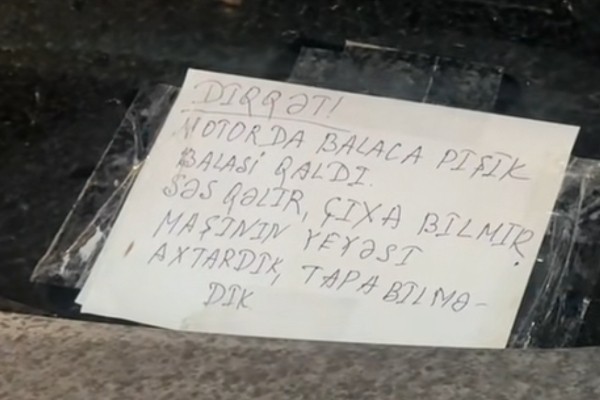 DİQQƏT!
MOTORDA BALACA PİŞİK
BALASİ QALDI.
SƏS QƏLİR, ÇIXA BİLMİR.
MAŞININ YEYƏSİ
AXTARDIK, TAPA BİLMƏ-
DİK